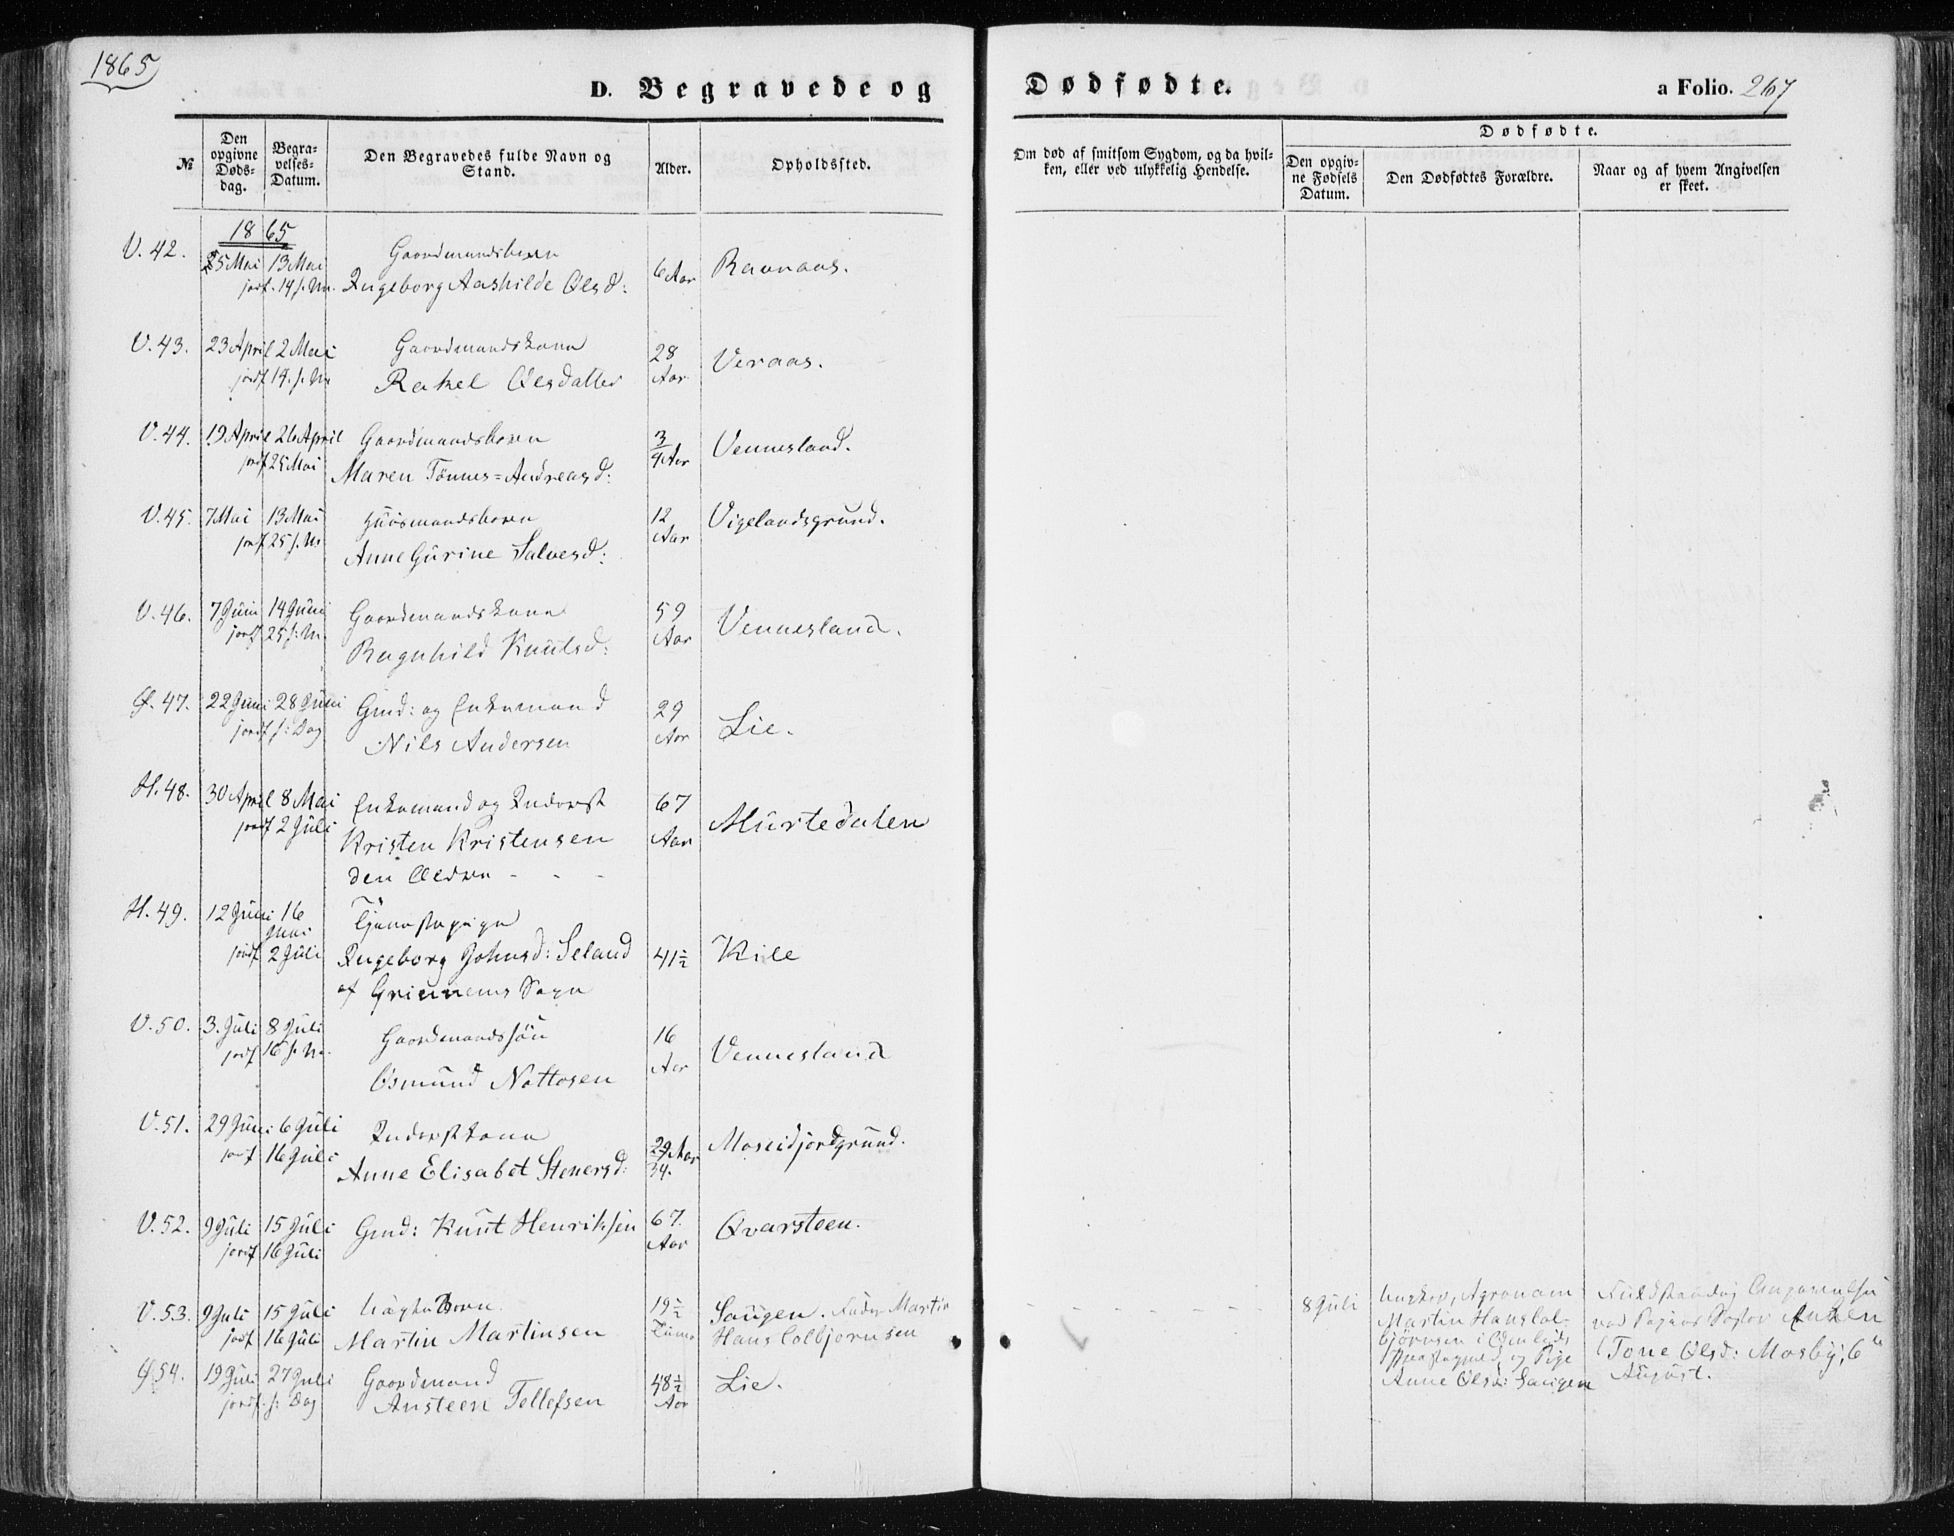 1865
D. Begravede og Dødfødte.
a Folio. 267
№
Den opgivne Døds-dag.
Begra-velses-Datum.
Den Begravedes fulde Navn og Stand.
Alder.
Opholdssted.
Om død af smitsom Sygdom, og da hvil-ken, eller ved ulykkelig Hendelse.
Dødfødte.
Den opgiv-ne Fødsels Datum.
Den Dødfødtes Forældre.
Naar og af hvem Angivelsen er skeet.
1865
V. 42. 5 Mai 13 Mai Gaardmandsbarn
jordf. 14 s. M. Ingeborg Aashilde Olsd: 6 Aar Ravnaas.
V. 43. 23 April 2 Mai Gaardmandskone 28
jordf 14. s. M Rakel Olsdatter Aar Veraas.
V. 44. 19 April 26 April Gaardmandsbarn 3/4 Aar Vennesland.
jordf 25 Mai Maren Tönnes=Andreasd:
V. 45. 7 Mai 13 Mai Huusmandsbarn 12 Vigelandsgrund.
jordf 25 s. M Anne Gurine Salvesd: Aar
V. 46. 7 Juni 14 Juni Gaardmandskone 59
jordf 25 s: M. Ragnhild Knutsd: Aar Vennesland.
Ø. 47. 22 Juni 28 Juni Gmd: og Enkemand 29
jordf s: Dag Nils Andersen Aar Lie.
H. 48. 30 April 8 Mai Enkemand og Inderst 67
jordf 2 Juli Kristen Kristensen Aar Murtedalen
den Ældre - - -
H. 49. 12 Juni 16 Juni Tjenestepige
jordf 2 Juli Ingeborg Johnsd: Seland 41 1/2 Kile
af Grimnems Sogn
V. 50. 3. Juli 8 Juli Gaardmandssön 16
jordf 16 s. M. Osmund Nottosen Aar Vennesland
V. 51. 29 Juni 6 Juli Inderstkone
jordf 16 Juli Anne Elisabet Stenersd: 29 Aar 34. Moseidjordgrund.
V. 52. 9 Juli 15 Juli Gmd: Knut Henriksen 67. Qvarsteen.
jordf 16 Juli Aar
V. 53. 9 Juli 15 Juli Uægte Barn. 19 1/2 Saugen. Fader Martin
jordf 16 Juli Martin Martinsen Timer Hans Colbjornsen
8 Juli
Ungkar, Agronom
Martin Hans Col-
björnsen i Oddernæs
Præstegjeld, og Pige
Anne Olsd: Saugen
ved Pigens Søster Enken
Tone Olsd: Mosby, 6"
August.
Ø. 54. 19 Juli 27 Juli Gaardmand 48 1/2 Lie.
jordf. s: Dag Ansteen Tellefsen Aar